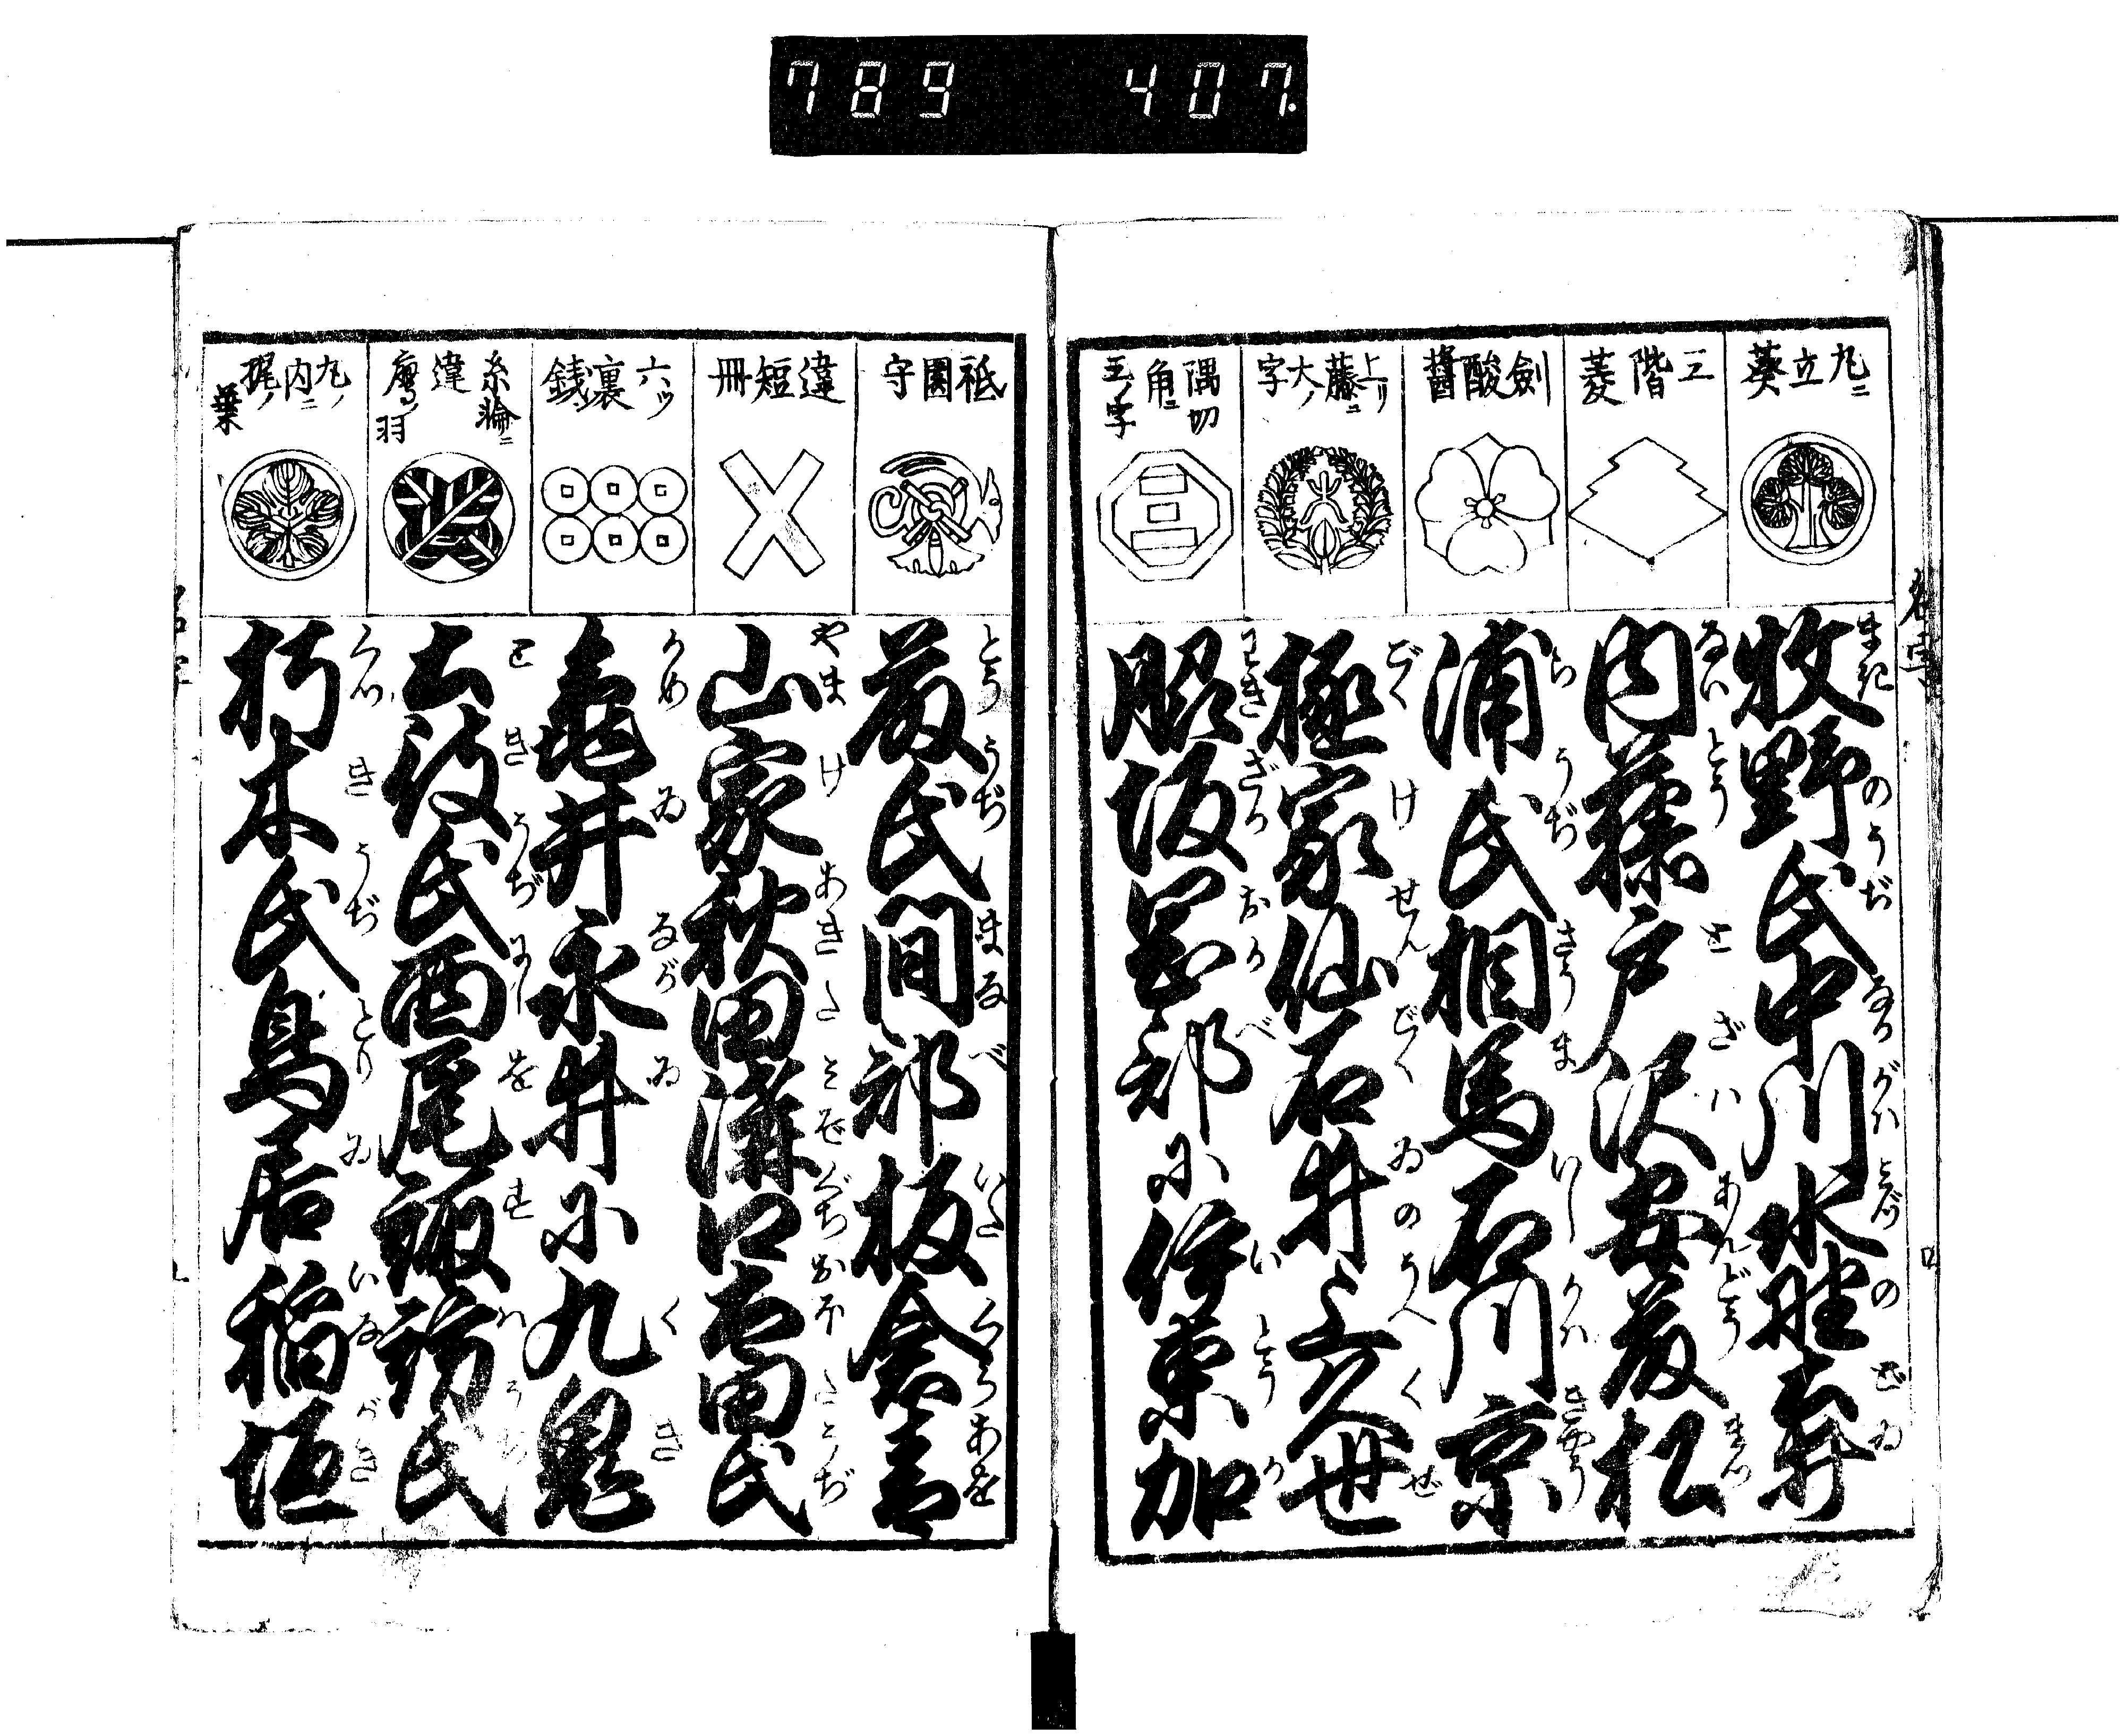 789 407.
丸ニ立葵
三階菱
劍酸醬
上リ藤ニ大ノ字
隅切角ニ五ノ字
牧野氏中川水野土井
内藤戸沢安藤松
浦氏相馬石川京
極家仙石井上久世
脇坂岡部に伊東加
祗園守
違短冊
六ツ裏銭
糸輪ニ違鷹ノ羽
丸ノ内ニ梶ノ葉
藤氏間部板倉青
山家秋田溝口太田氏
亀井永井に九鬼
土岐氏西尾諏訪氏
朽木氏鳥居稲垣